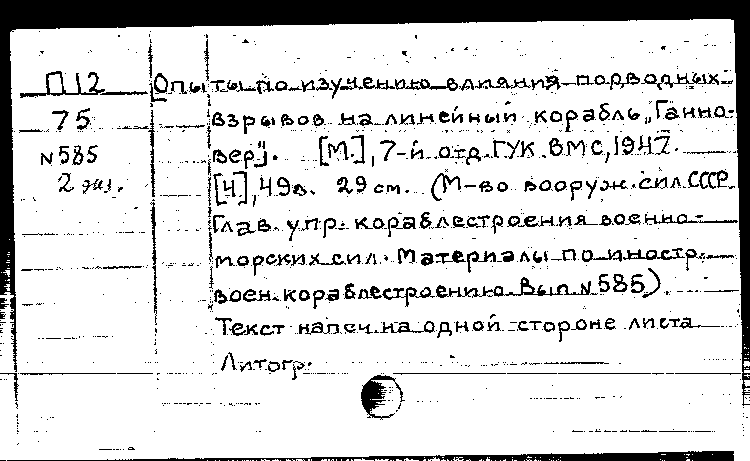 П12 Опыты по изучению влияния подводных
75 взрывов на линейный корабль „Ганно-
N585 вер". [М.], 7-й отд. ГУК ВМС, 1947.
2 экз. [4], 49 л. 29 см. (М-во вооруж. сил СССР.
Глав. упр. кораблестроения военно-
морских сил. Материалы по иностр.
воен. кораблестроению. Вып. N585).
Текст напеч. на одной стороне листа.
Литогр.